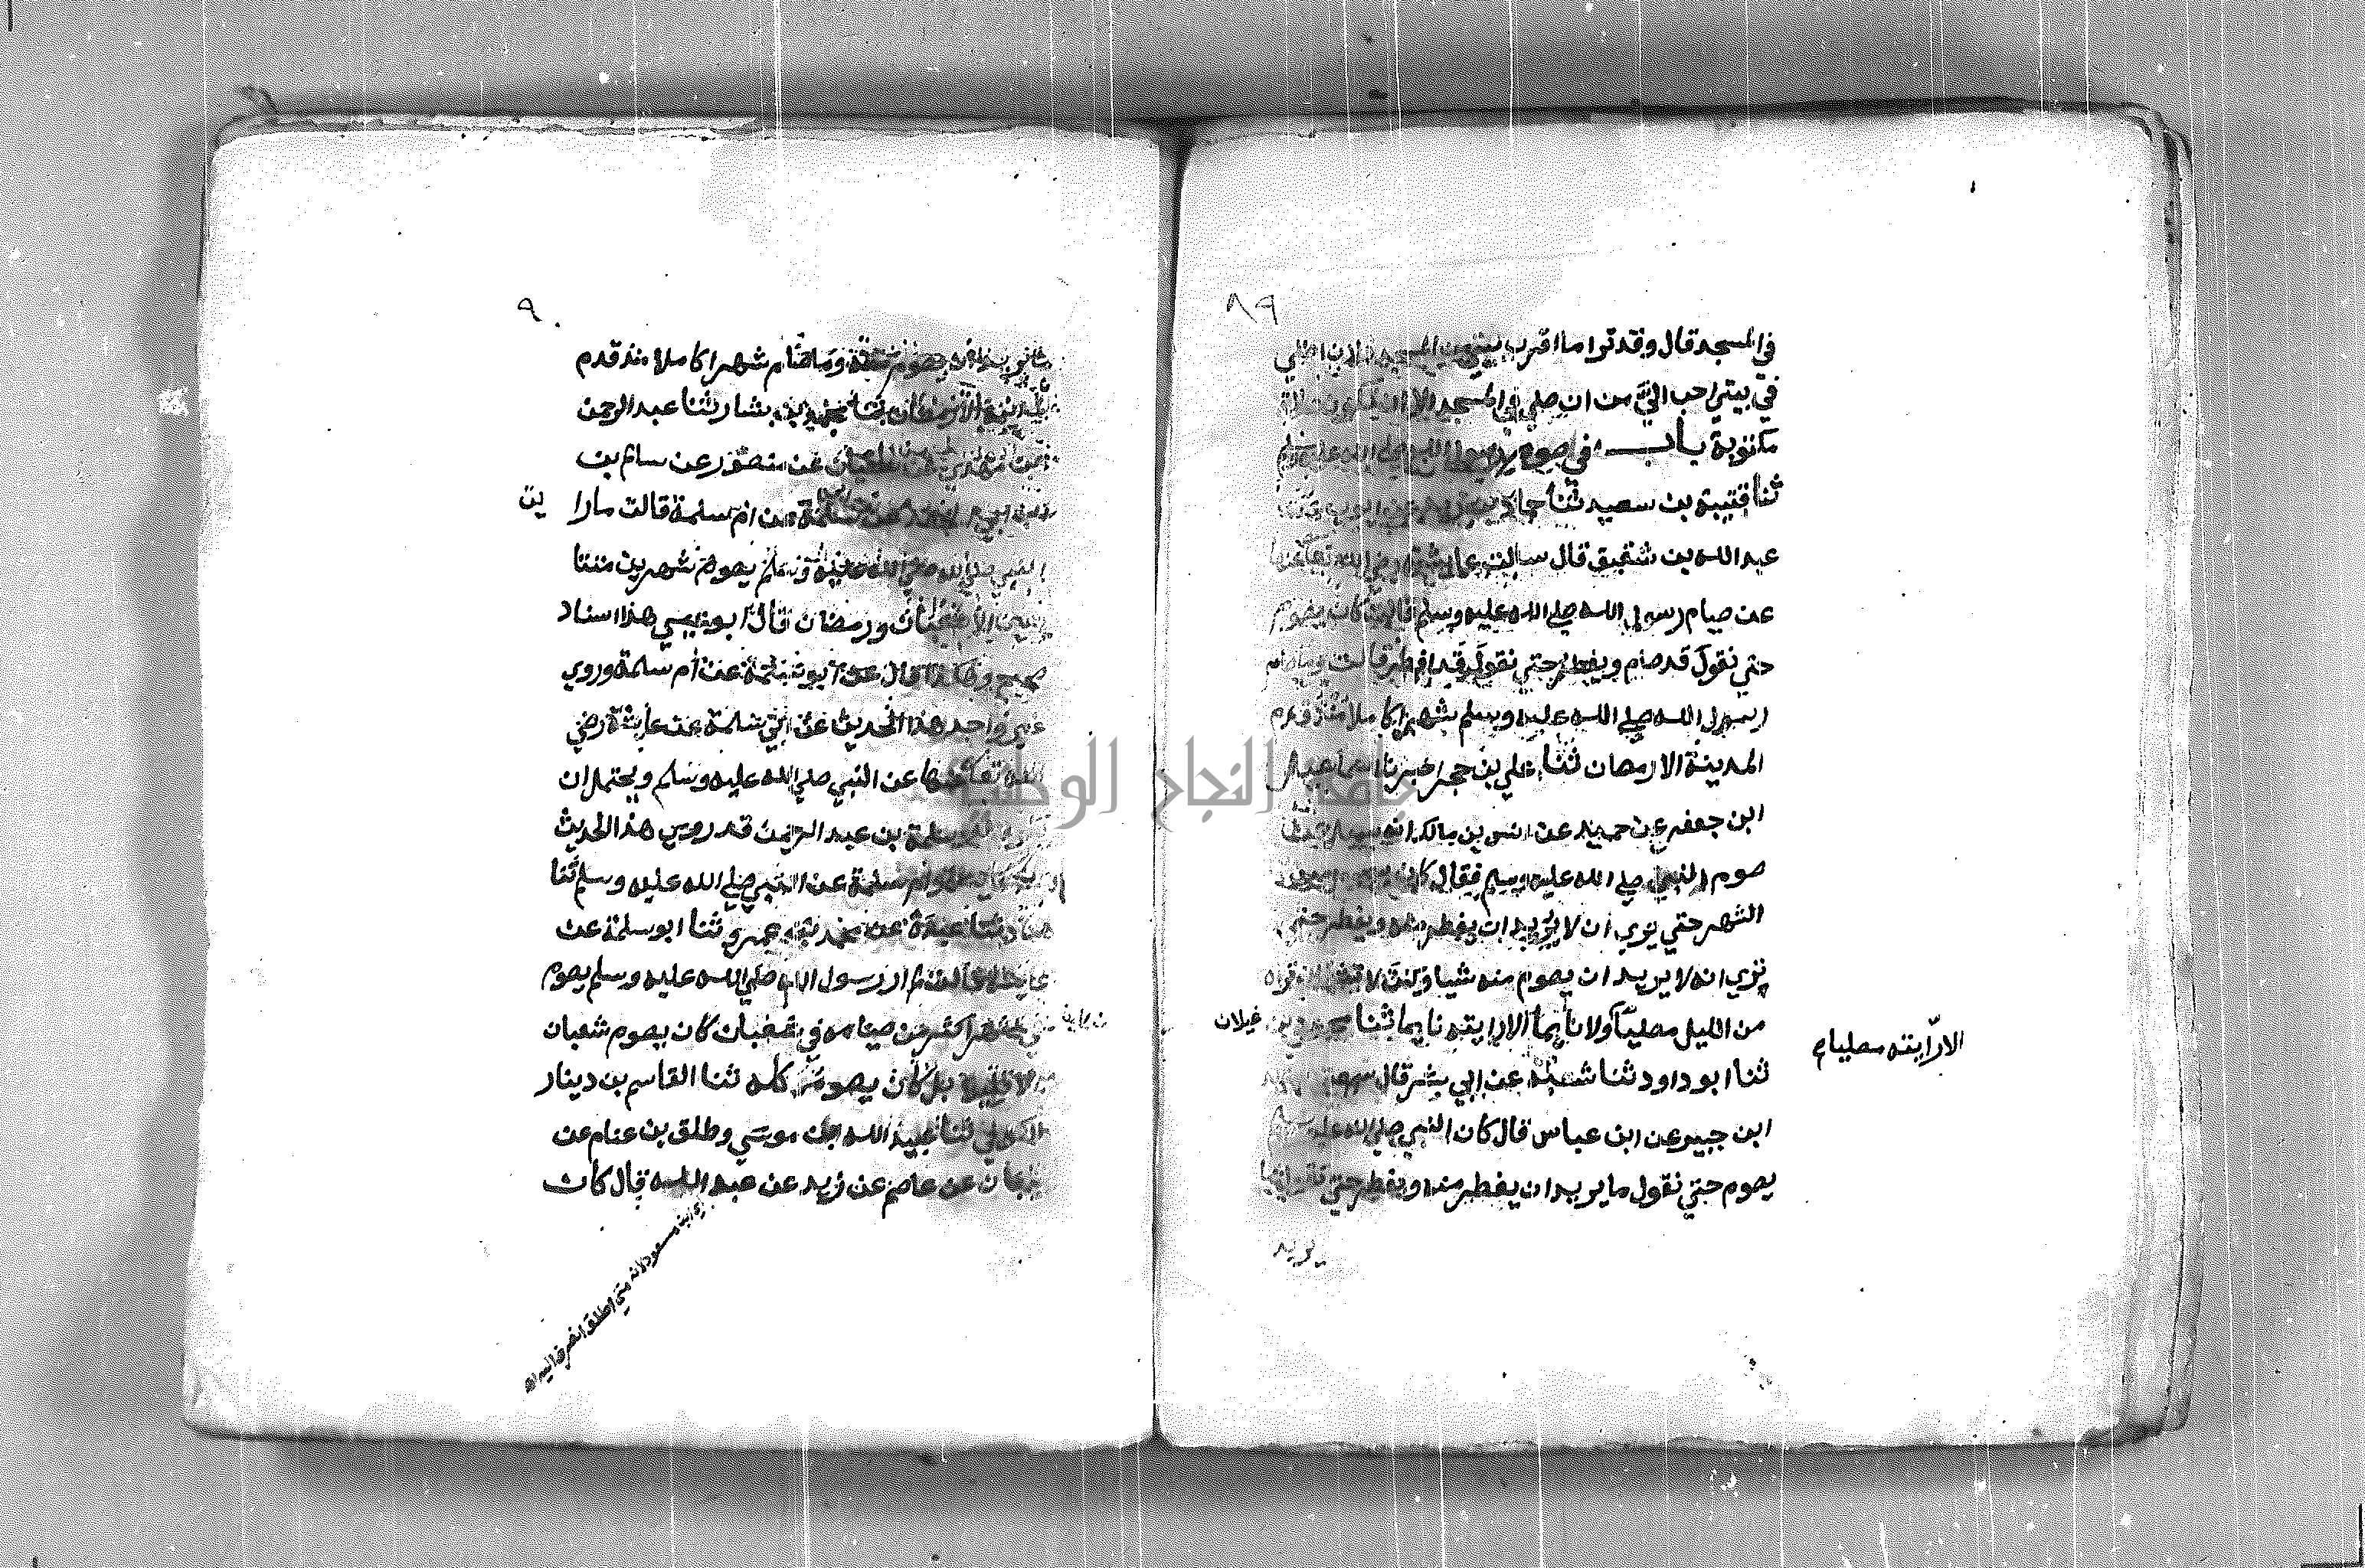 ٨٩
في المسجد قال وقد ترا ما اقرب بيتي من المسجد فلان اصلي
في بيتي احب الي من ان صلي في المسجد الا ان تكون صلاة
مكتوبة باب في صوم رسول الله صلي الله عليه وسلم
ثنا قتيبة بن سعيد ثنا حماد بن زيد عن ايوب عن
عبد الله بن شقيق قال سالت عايشة رضي الله تعا عنها
عن صيام رسول الله صلي الله عليه وسلم قالت كان يصوم
حتي نقول قد صام ويفطر حتي نقول قد افطر قالت وما صام
رسول الله صلي الله عليه وسلم شهرا كاملا منذ قدم
المدينة الا رمضان ثنا علي بن حجر اخبرنا اسماعيل
ابن جعفر عن حميد عن انس بن مالك انه سيل عن
صوم النبي صلي الله عليه وسلم فقال كان يصوم من
الشهر حتي نري ان لا يريد ان يفطر منه ويفطر حتي
نري انه لا يريد ان يصوم منه شيا وكنت لا تشا ان تراه
من الليل مصليا ولا نايما الا رايته نايما ثنا محمود بن غيلان
الا رايته مصليا
ثنا ابو داود ثنا شعبة عن ابي بشر قال سمعت
ابن جبير عن ابن عباس قال كان النبي صلي الله عليه وسلم
يصوم حتي نقول ما يريد ان يفطر منه ويفطر حتي نقول ما
يريد
٩٠
يصوم وما صام شهرا كاملا منذ قدم
المدينة الا رمضان ثنا محمد بن بشار ثنا عبد الرحمن
بن مهدي عن سفيان عن منصور عن سالم بن
ابي الجعد عن ابي سلمة عن ام سلمة قالت ما را يت
النبي صلي الله عليه وسلم يصوم شهرين متتا
بعين الا شعبان ورمضان قال ابو عيسي هذا اسناد
صحيح وهكذا قال عن ابي سلمة عن ام سلمة وروي
غير واحد هذا الحديث عن ابي سلمة عن عايشة رضي
الله تعا عنها عن النبي صلي الله عليه وسلم ويحتمل ان
ابو سلمة بن عبد الرحمن قد روي هذا الحديث
عن عايشة وام سلمة عن النبي صلي الله عليه وسلم ثنا
هناد ثنا عبدة عن محمد بن عمرو ثنا ابو سلمة عن
عايشة قالت لم ار رسول الله صلي الله عليه وسلم يصوم
في شهر اكثر من صيامه في شعبان كان يصوم شعبان
الا قليلا بل كان يصومه كله ثنا القاسم بن دينار
الكوفي ثنا عبيد الله بن موسي وطلق بن غنام عن
شيبان عن عاصم عن زر عن عبد الله قال كان
اي ابن مسعود لانه متي اطلق انصرف اليه
جامعة النجاح الوطنية